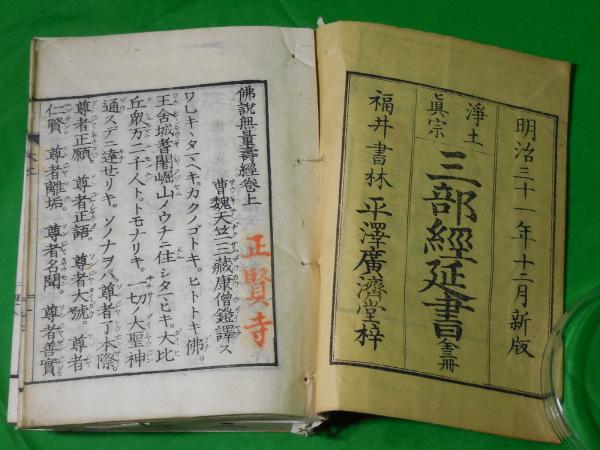 明治三十一年十二月新版
淨土
眞宗
三部經延書 全三冊
福井書林 平澤廣濟堂梓
佛說無量壽經卷上
曹魏天竺三藏康僧鎧譯ス
正賢寺
ワレキヽタマヘキ。カクノゴトキ。ヒトトキ佛。
王舍城耆闍崛山ノウチニ住シタマヒキ。大比
丘衆万二千人ト。トモナリキ。一切ノ大聖神
通スデニ達セリキ。ソノナヲバ尊者了本際。
尊者正願。尊者正語。尊者大號。尊者
仁賢。尊者離垢。尊者名聞。尊者善實。